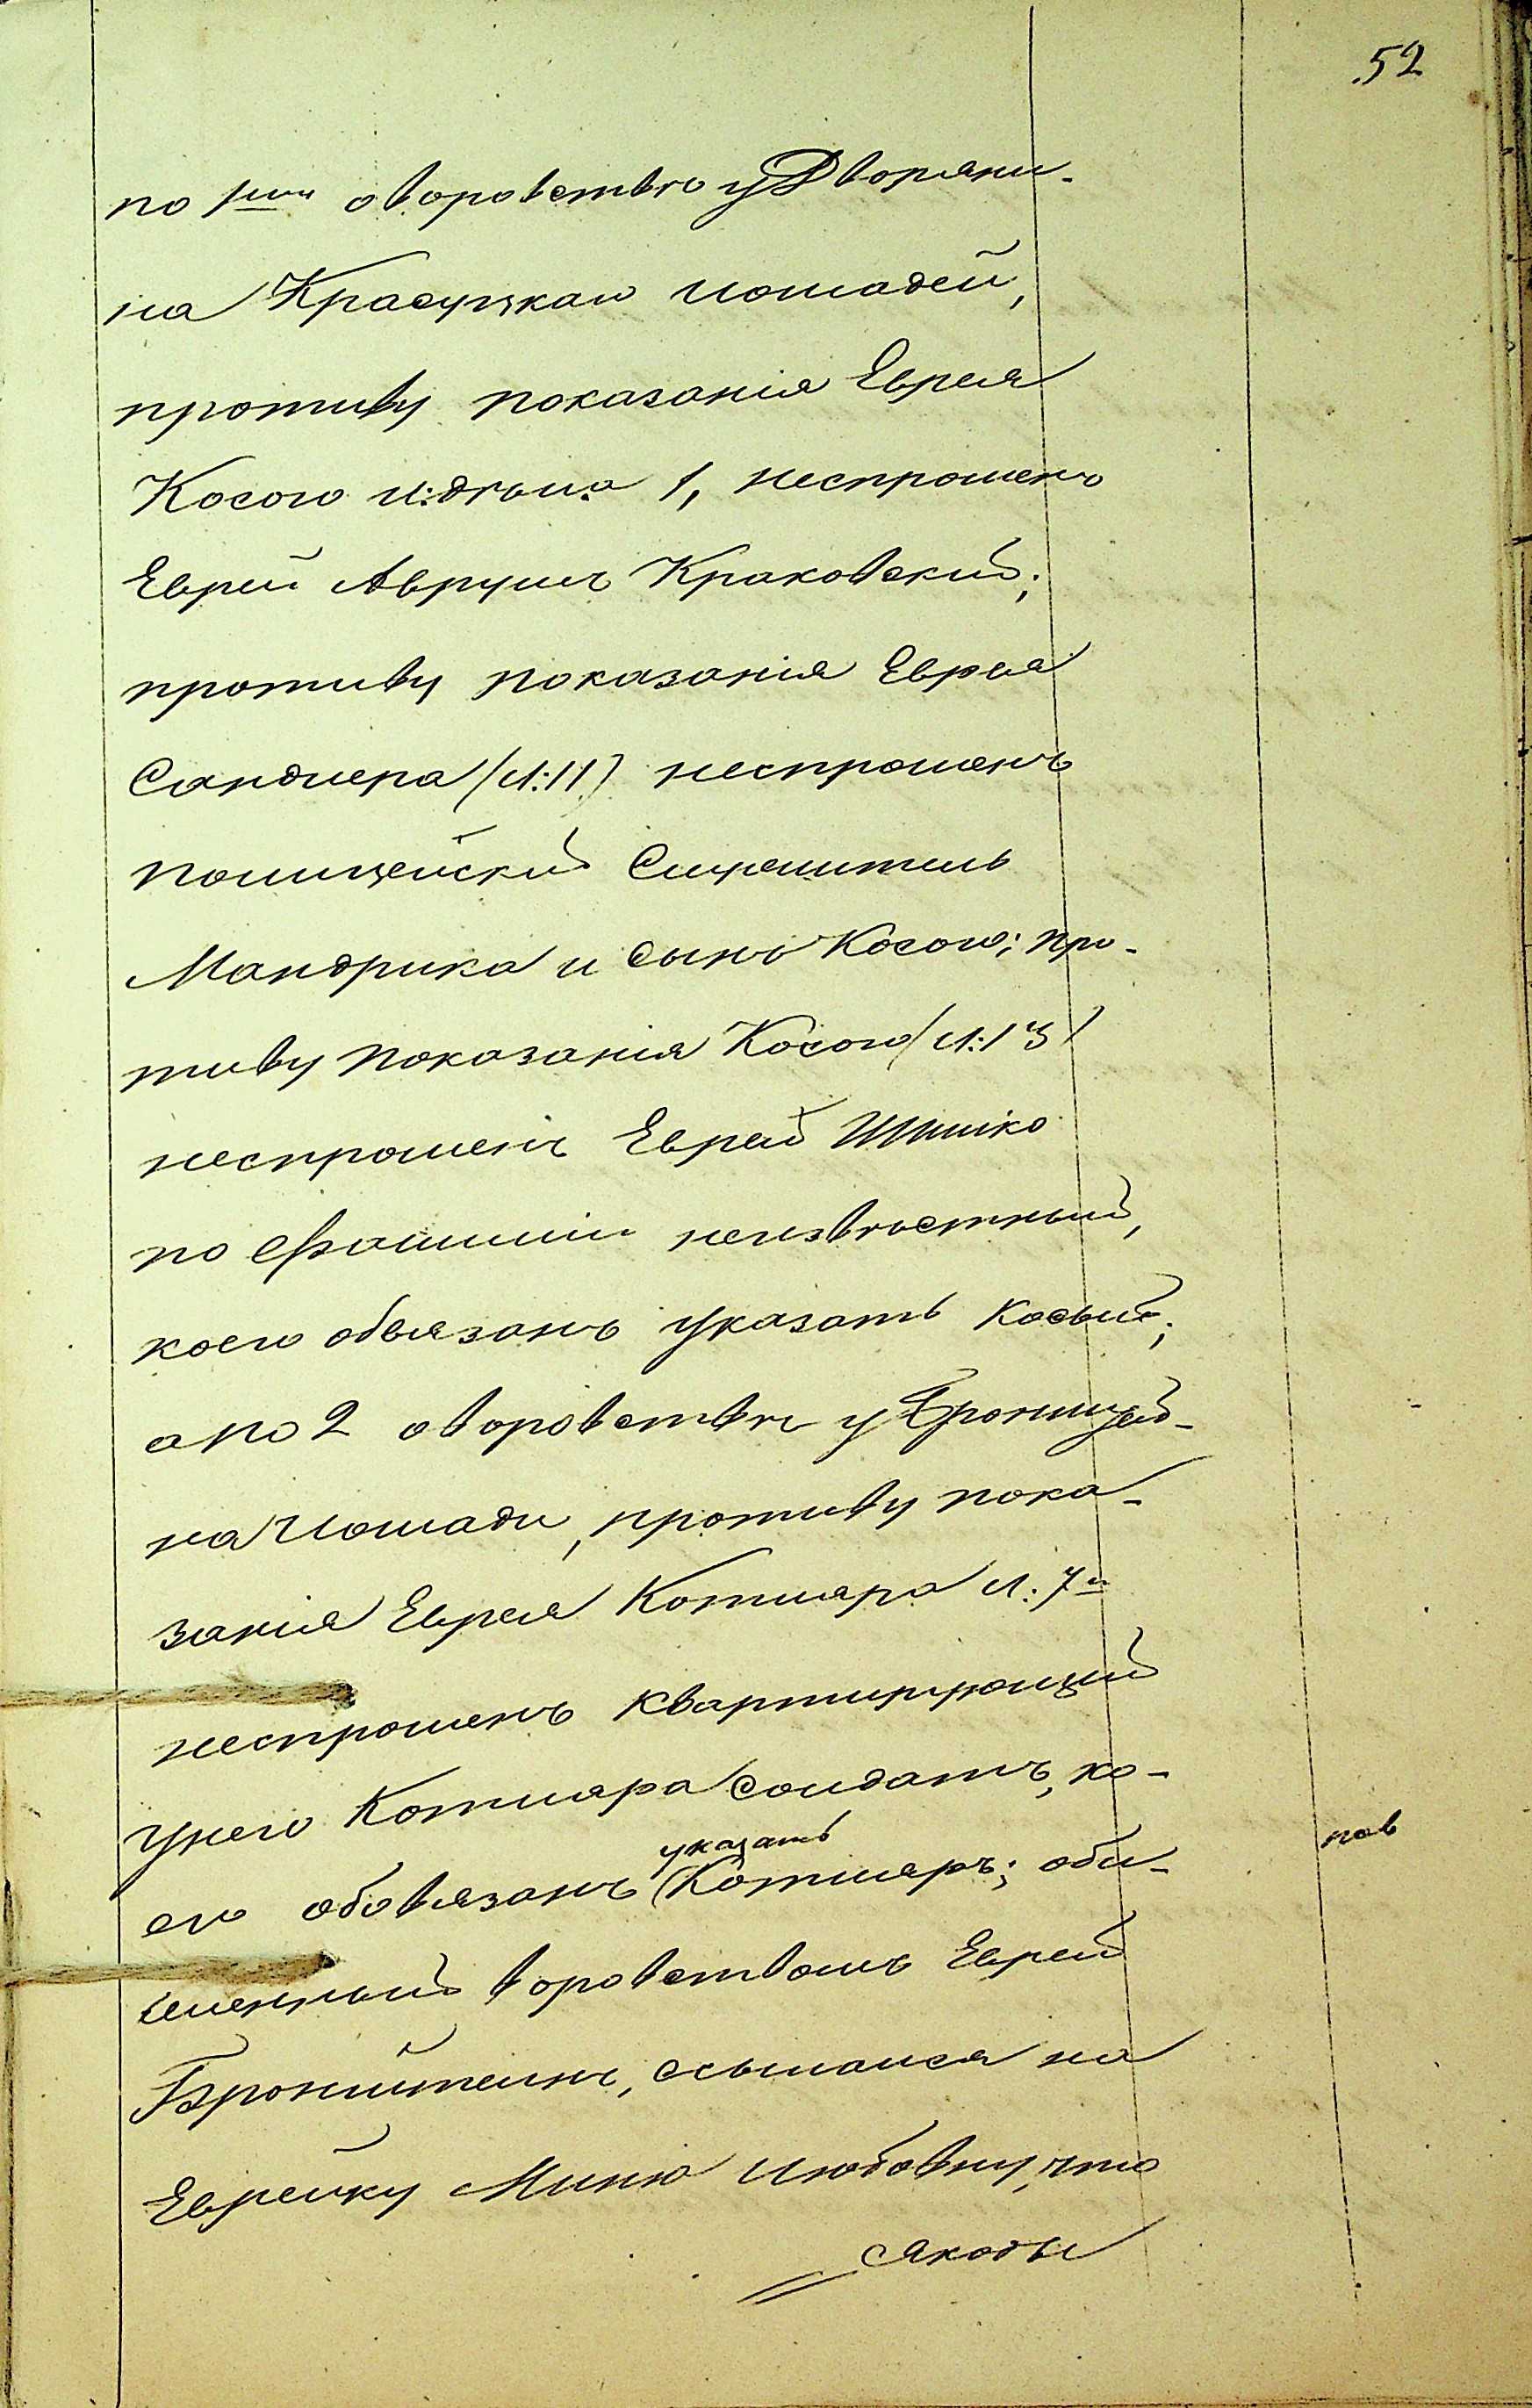 52
по 1му оворовствѣ уДворяни-
на Красуцкаго лошадей,
противу показанія Еврея
Косого л: дѣла 1, неспрошенъ
Еврей Аврумъ Краковскій;
противу показанія Еврея
Сандлера (л: 11) неспрошенъ
полицейскій Служитель
Мандрика и сынъ Косого; про-
тиву показанія Косого (л: 13)
неспрошенъ Еврей Шміко
по Фамиліи неизвѣстный,
коего обязанъ указать Косый;
апо 2 оворовствѣ у
на лошади, противу пока-
занія Еврея Котляра л: 7й
неспрошенъ квартирующій
унего Котляра Солдатъ, ко-
его обовязанъ указать Котляръ; обы-
воровствомъ Еврей
Бронштейнъ, ссылался на
Еврейку Миню Любовну, что
якобы